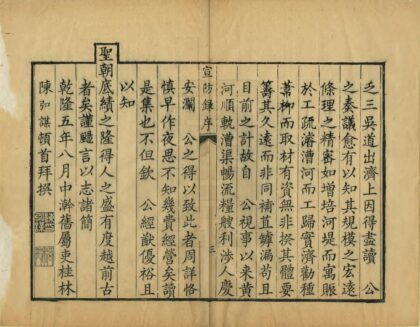 之三吳道出濟上因得盡讀 公
之奏議愈有以知其規模之宏遠
條理之精密如增培河堤而寓賑
於工疏濬漕河而工歸實濟勸種
葦柳而取材有資無非揆其體要
籌其久遠而非同補苴罅漏苟且
目前之計故自 公視事以來黃
河順軌漕渠暢流糧艘利涉人慶
宣防錄序 三
安瀾 公之得以致此者周詳恪
慎早作夜思不知幾費經營矣讀
是集也不但欽 公經猷優裕且
以知
聖朝底績之隆得人之盛有度越前古
者矣謹颺言以志諸簡
乾隆五年八月中澣舊屬吏桂林
陳弘謀頓首拜撰